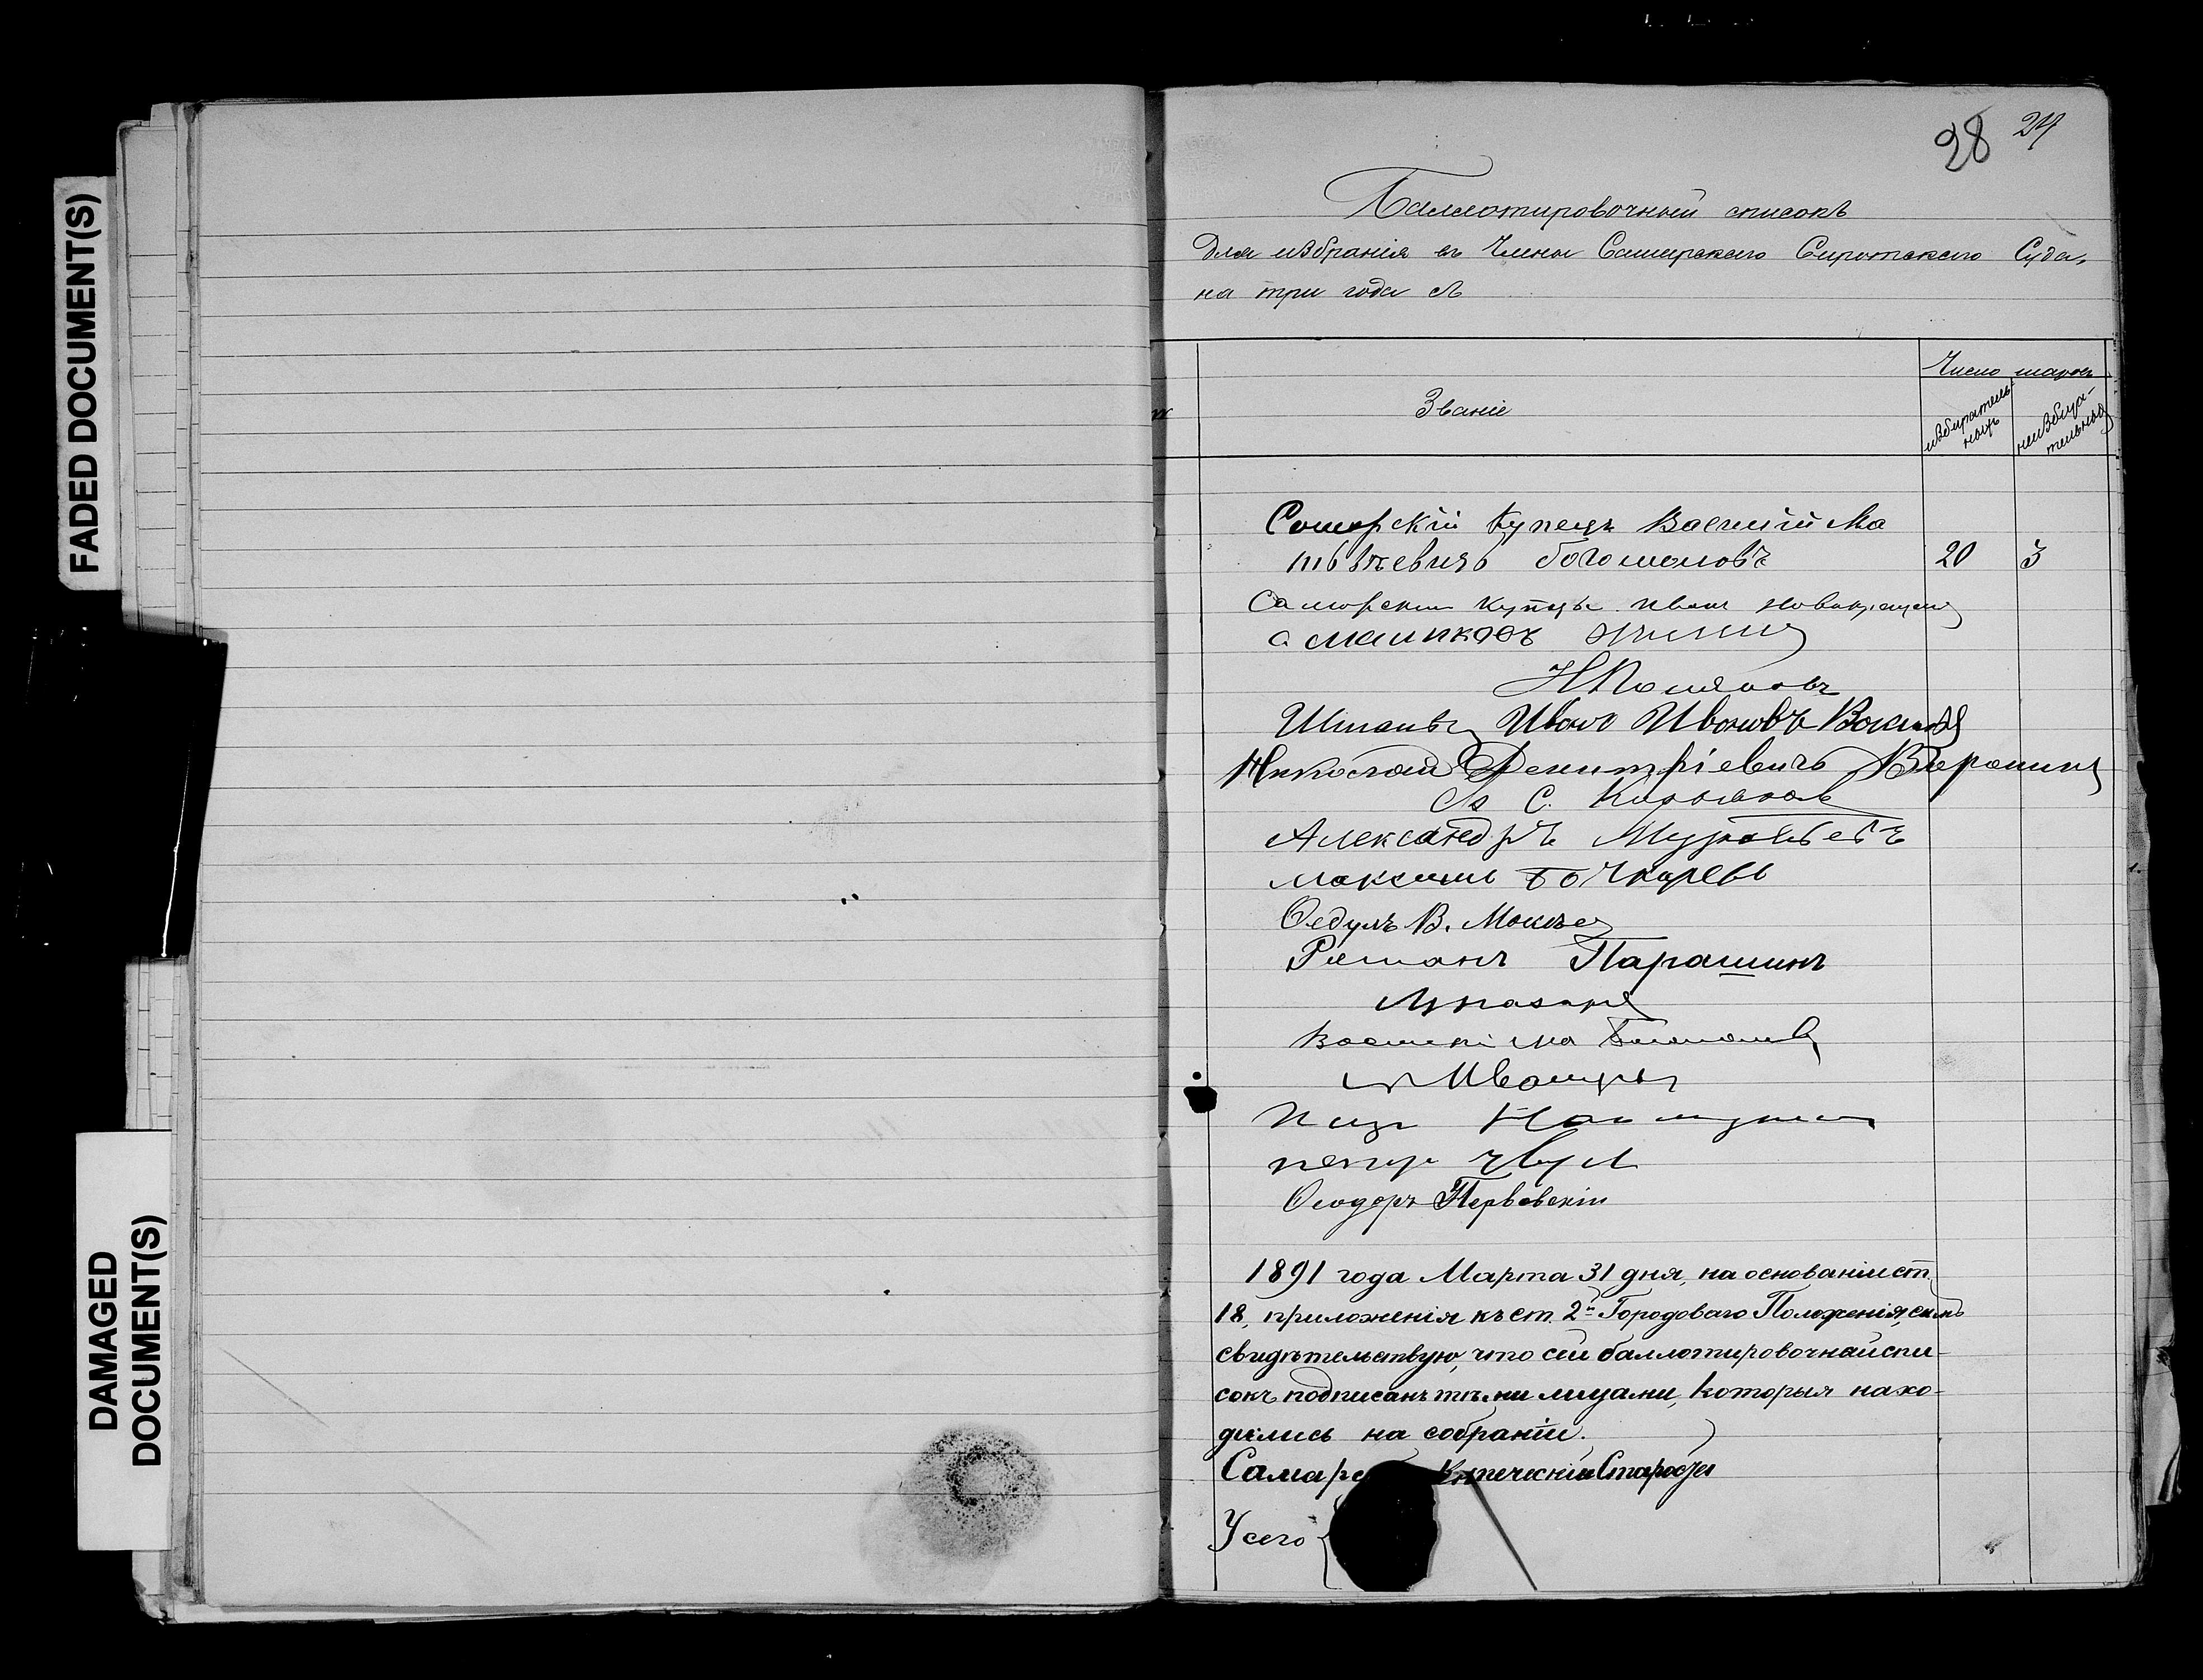 FADED DOCUMENT(S)
DAMAGED
DOCUMENT(S)
28 24
Баллотировочный списокъ
для избранія въ Члены Самарскаго Сиротскаго Суда,
на три года съ
Число шаровъ
Званіе
избиратель
ныхъ
неизбира-
тельныхъ
Самарскій Купецъ Василій Ма
твѣевичъ богомоловъ 20 3
Самарскій купецъ иванъ
Н Поляковъ
Иванъ Ивановъ
Николай Дмитріевичъ
С.
Александръ Муравьевъ
Максимъ Бочкаревъ
Ѳедулъ В. Мокѣев
Романъ Парашинъ
Василій Ма Богомоловъ
петръ
Ѳеодоръ Первовскій
1891 года Марта 31 дня, на основаніи ст
18, приложенія къ ст. 2й Городоваго Положенія, симъ
свидѣтельствую, что сей баллотировочный спи-
сокъ подписанъ тѣми лицами, которыя нахо-
дились на собраніи.
Самарс Купеческій Староста